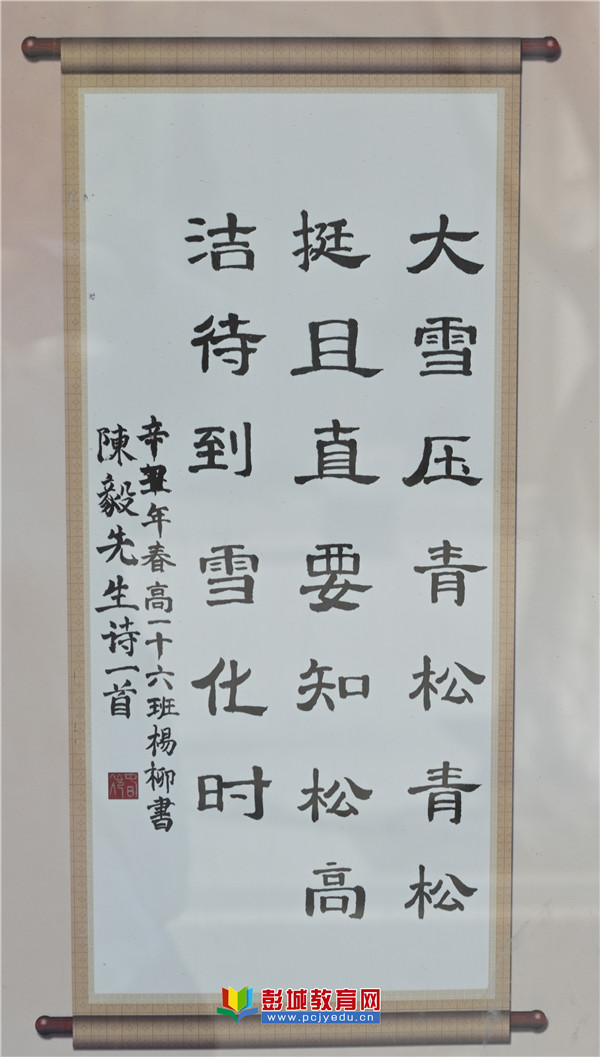 大雪压青松青松
挺且直要知松高
洁待到雪化时
辛丑年春高一十六班杨柳書
陳毅先生诗一首
彭城教育网
www.pcjyedu.cn